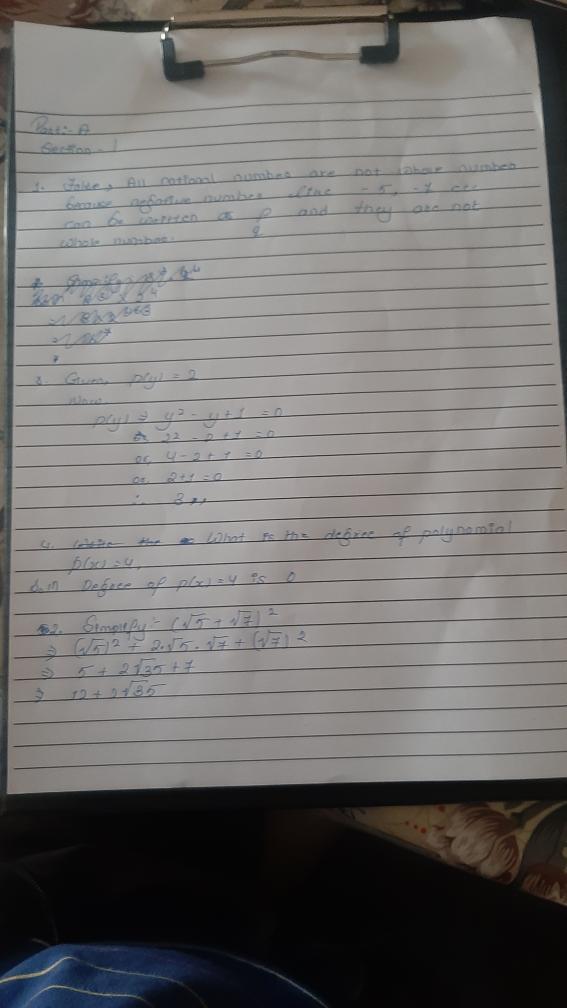 Part:- A
Section - 1
1. False, All rational number are not whole number
because negative number like - 5, -7 etc
can be written as p/q and they are not
whole number.
3. Given, p(y) = 2
Now,
p(y) ⇒ y² - y + 1 = 0
2² - 2 + 1 = 0
or, 4 - 2 + 1 = 0
or 2+1 = 0
∴ 3
4. What is the degree of polynomial
p(x) = 4,
Degree of p(x) = 4 is 0
2. Simplify:- (√5 + √7)²
⇒ (√5)² + 2.√5 . √7 + (√7)²
⇒ 5 + 2√35 + 7
⇒ 12 + 2√35